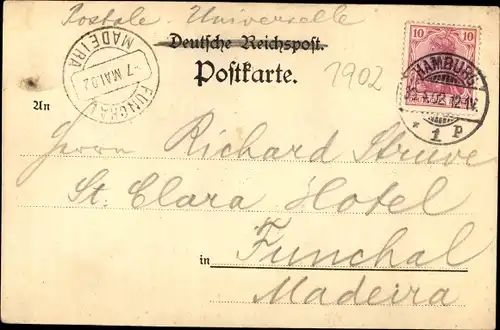 Postale-Universelle
Deutsche Reichspost.
Postkarte.
1902
10 10
HAMBURG
.4.02. 12-1N.
* 1 P
MADEIRA
-7 MAI.02
FUNCHAL
An
Herrn Richard Struve
St. Clara Hotel
in Funchal
Madeira